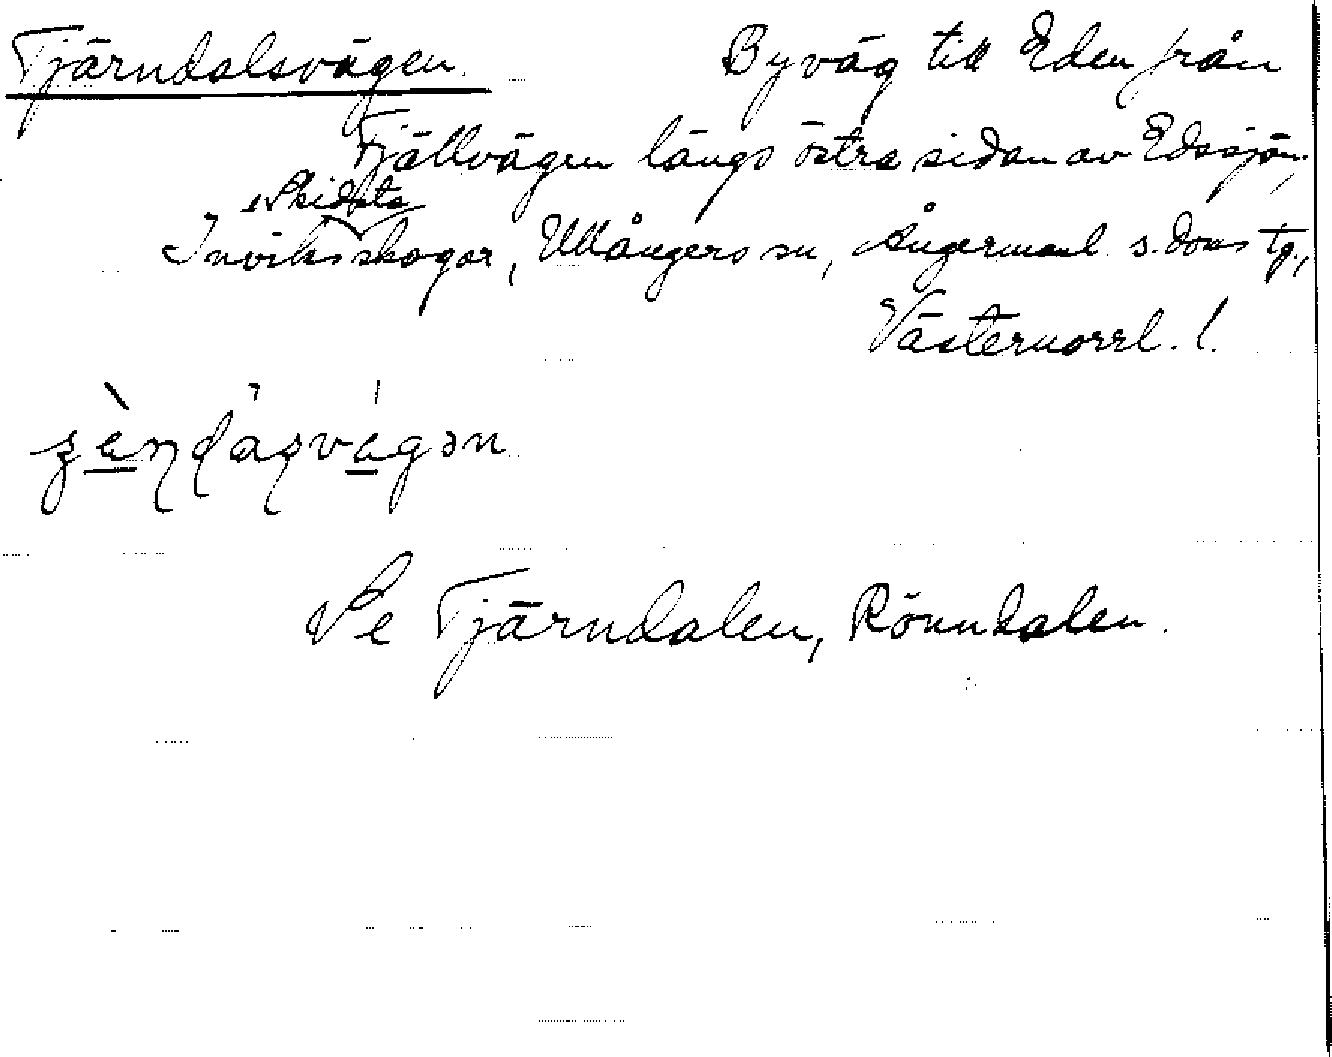 Tjärndalsvägen. Byväg till Eden från
Fjällvägen längs östra sidan av Edssjön,
Inviks skogar, Ullångers sn, Ångermanl. s. doms tg.,
Västernorrl. l.
Se Tjärndalen, Rönndalen.